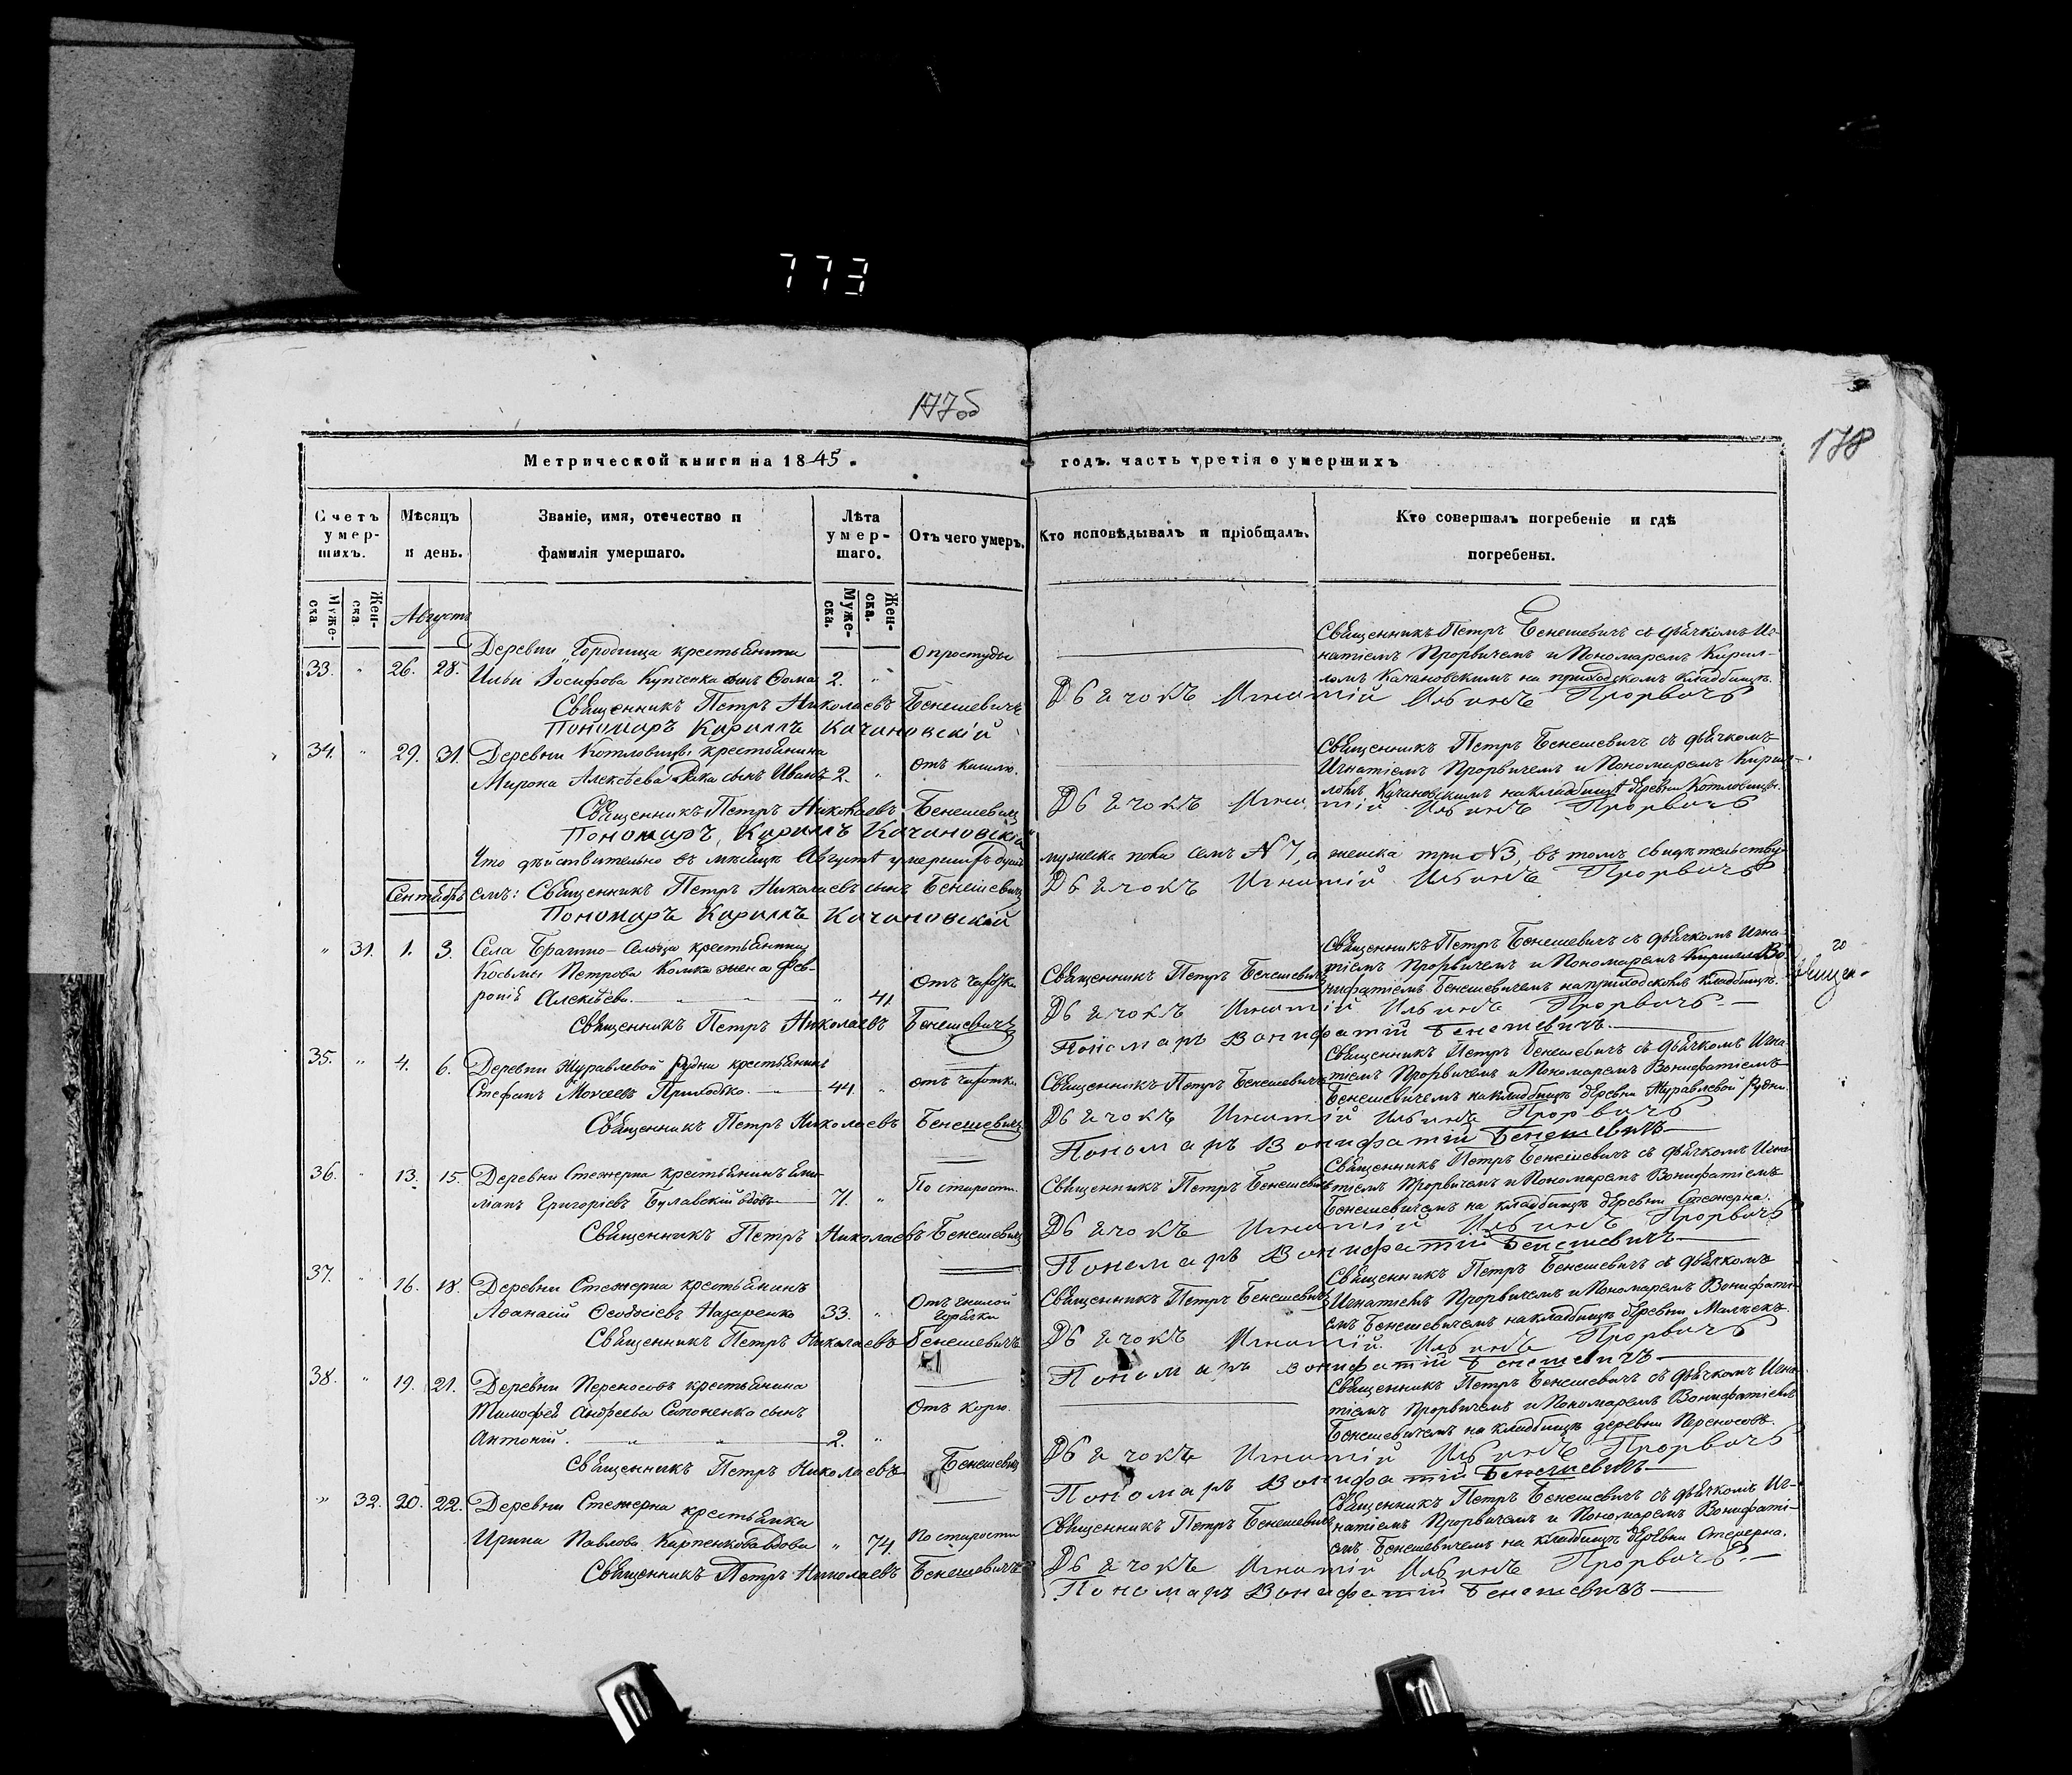 773
177об
178
Метрической книги на 1845.
годъ. часть третія о умершихъ
Счетъ умер-шихъ.
Мѣсяцъ и день.
Званіе, имя, отечество и фамилія умершаго.
Лѣта умер-шаго.
Отъ чего умеръ.
Кто исповѣдывалъ и пріобщалъ.
Кто совершалъ погребеніе и гдѣ погребены.
Муже-ска
Жен-ска.
Августъ
Муже-ска.
Жен-ска.
33. " 26. 28. Деревни Городища крестьянина
Ильи Іосифова Купченка сынъ Ѳома 2. "
О простуды
Священникъ Петръ Бенешевичъ съ дьячкомъ Иг-
натіемъ Прорвичемъ и Пономаремъ Кирил-
ломъ Качановскимъ на приходскомъ кладбищѣ.
Священникъ Петръ Николаевъ Бенешевичъ
Дьячокъ Игнатій Ильинъ Прорвичъ
Пономаръ Кариллъ Качановскій
34. " 29. 31. Деревни Котловицы крестьянина
Мирона Алексѣева Рака сынъ Иванъ 2. "
Отъ кашлю.
Священникъ Петръ Бенешевичъ съ дьячкомъ
Игнатіемъ Прорвичемъ и Пономаремъ Кирил-
ломъ Качановскимъ на кладбищѣ деревни Котловицы.
Священникъ Петръ Николаевъ Бенешевичъ
Дьячокъ Игнатій Ильинъ Прорвичъ
Пономаръ Кариллъ Качановскій
Что дѣйствительно въ мѣсяцѣ Августѣ умерших душъ мужеска пола семъ № 7, а женска три № 3, въ томъ свидѣтельству
Сентябръ
емъ: Священникъ Петръ Николаевъ сынъ Бенешевичъ
Дьячокъ Игнатій Ильинъ Прорвичъ
Пономаръ Кариллъ Качановскій
" 31. 1. 3. Села Брагино-Сельца крестьянина
Косьмы Петрова Комка жена Фев-
ронія Алексѣева. " 41.
Отъ чахотки
Священникъ Петръ Бенешевичъ
Священникъ Петръ Бенешевичъ съ дьячкомъ Игна-
тіемъ Прорвичемъ и Пономаремъ Кирилл Во-
нифатіемъ Бенешевичемъ на приходскомъ кладбищѣ.
Священникъ Петръ Николаевъ Бенешевичъ
Дьячокъ Игнатій Ильинъ Прорвичъ
Пономаръ Вонифатій Бенешевичъ
35. " 4. 6. Деревни Журавлевой Рудни крестьянинъ
Стефанъ Моисеевъ Приходько. 44. "
отъ чахотки
Священникъ Петръ Бенешевичъ
Священникъ Петръ Бенешевичъ съ дьячкомъ Игна-
тіемъ Прорвичемъ и Пономаремъ Вонифатіемъ
Бенешевичемъ на кладбищѣ деревни Журавлевой Рудни.
Священникъ Петръ Николаевъ Бенешевичъ
Дьячокъ Игнатій Ильинъ Прорвичъ
Пономаръ Вонифатій Бенешевичъ
36. " 13. 15. Деревни Стежерна крестьянинъ Еми-
ліанъ Григоріевъ Булавскій вдовъ 71. "
По старости.
Священникъ Петръ Бенешевичъ
Священникъ Петръ Бенешевичъ съ дьячкомъ Игна-
тіемъ Прорвичемъ и Пономаремъ Вонифатіемъ
Бенешевичемъ на кладбищѣ деревни Стежерна.
Священникъ Петръ Николаевъ Бенешевичъ
Дьячокъ Игнатій Ильинъ Прорвичъ
Пономаръ Вонифатій Бенешевичъ
37. " 16. 18. Деревни Стежерна крестьянинъ
Аѳанасій Ѳеодосіевъ Назаренко 33. "
Отъ гнилой горячки
Священникъ Петръ Бенешевичъ
Священникъ Петръ Бенешевичъ съ дьячкомъ
Игнатіемъ Прорвичемъ и Пономаремъ Вонифаті-
емъ Бенешевичемъ на кладбищѣ деревни
Священникъ Петръ Николаевъ Бенешевичъ
Дьячокъ Игнатій Ильинъ Прорвичъ
Пономаръ Вонифатій Бенешевичъ
38. " 19. 21. Деревни Переносовъ крестьянина
Тимофей Андреева Сапоненко сынъ
Антоній. 2. "
Отъ корю.
Священникъ Петръ Бенешевичъ съ дьячкомъ Игна-
тіемъ Прорвичемъ и Пономаремъ Вонифатіемъ
Бенешевичемъ на кладбищѣ деревни Переносовъ.
Священникъ Петръ Николаевъ Бенешевичъ
Дьячокъ Игнатій Ильинъ Прорвичъ
Пономаръ Вонифатій Бенешевичъ
" 32. 20. 22. Деревни Стежерна крестьянка
Ирина Павлова Карпенкова вдова " 74.
По старости
Священникъ Петръ Бенешевичъ
Священникъ Петръ Бенешевичъ съ дьячкомъ Иг-
натіемъ Прорвичемъ и Пономаремъ Вонифаті-
емъ Бенешевичемъ на кладбищѣ деревни Стежерна.
Священникъ Петръ Николаевъ Бенешевичъ
Дьячокъ Игнатій Ильинъ Прорвичъ
Пономаръ Вонифатій Бенешевичъ